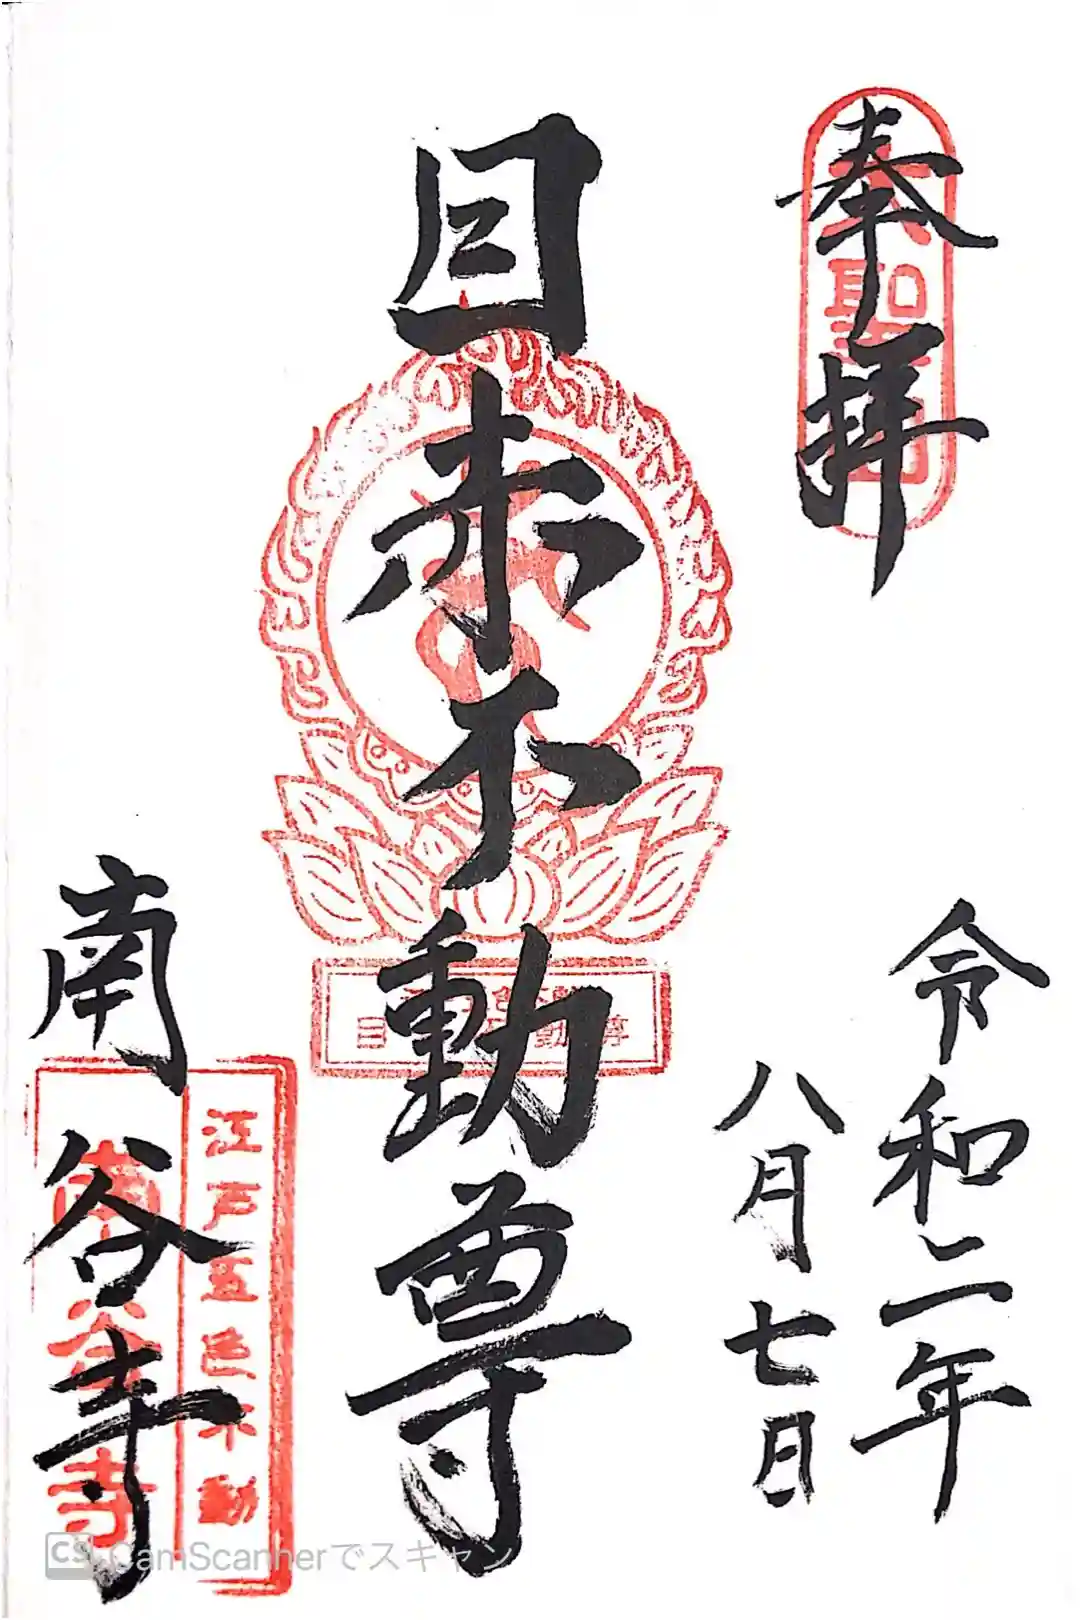 奉拝
令和二年
八月七日
目赤不動尊
南谷寺
大聖
江戸五色不動
南谷寺
CS CamScannerでスキャン